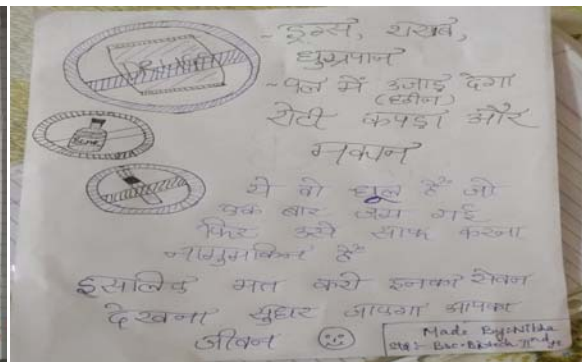 - ड्रग्स, शराब,
धुम्रपान
- पल में उजाड़ देगा
(छीन)
रोटी कपड़ा और
मकान
ये वो धूल हैं जो
एक बार जम गई
फिर उसे साफ करना
नामुमकिन हैं
इसलिए मत करो इनका सेवन
देखना सुधार जाएगा आपका
जीवन
Made By:- Nikha
Bsc-Biotech IInd yr